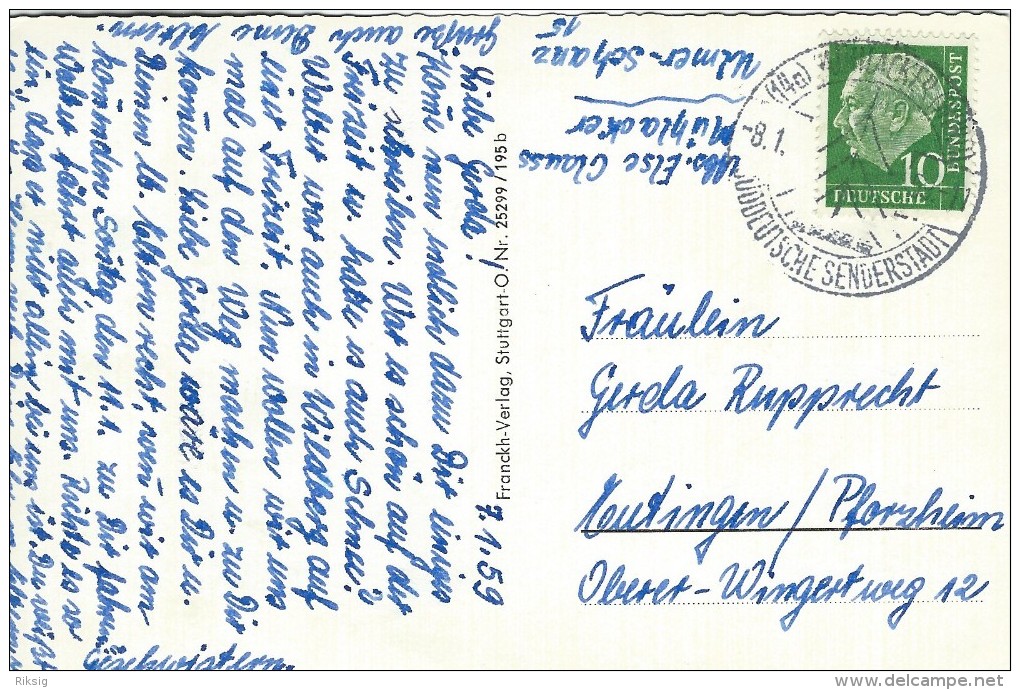 7.1.59
Liebe Gerda!
Komme nun endlich dazu Dir einiges
zu schreiben. War es schön auf der
Freizeit u. hatte es auch Schnee?
Walter war auch in Wildberg auf
einer Freizeit. Nun wollen wir uns
mal auf den Weg machen u. zu Dir
kommen. Liebe Gerda wäre es Dir u.
Deinen lb. Eltern recht, wenn wir am
kommenden Sonntag den 11.1. zu Dir fahren
Walter fährt auch mit uns. Richte es so
ein, daß er nicht allein beim ist. Du weißt
Grüße auch Deine Eltern.
Geschwistern.
Abs. Else Clauss
Mühlacker
Ulmer-Schanz
15
Franckh-Verlag, Stuttgart-O. Nr. 25299/195 b
(14a) MÜHLACKER
-8.1.
SÜDDEUTSCHE SENDERSTADT
10
DEUTSCHE
BUNDESPOST
Fräulein
Gerda Rupprecht
Eutingen / Pforzheim
Oberer-Wingertweg 12
Riksig
delcampe.net